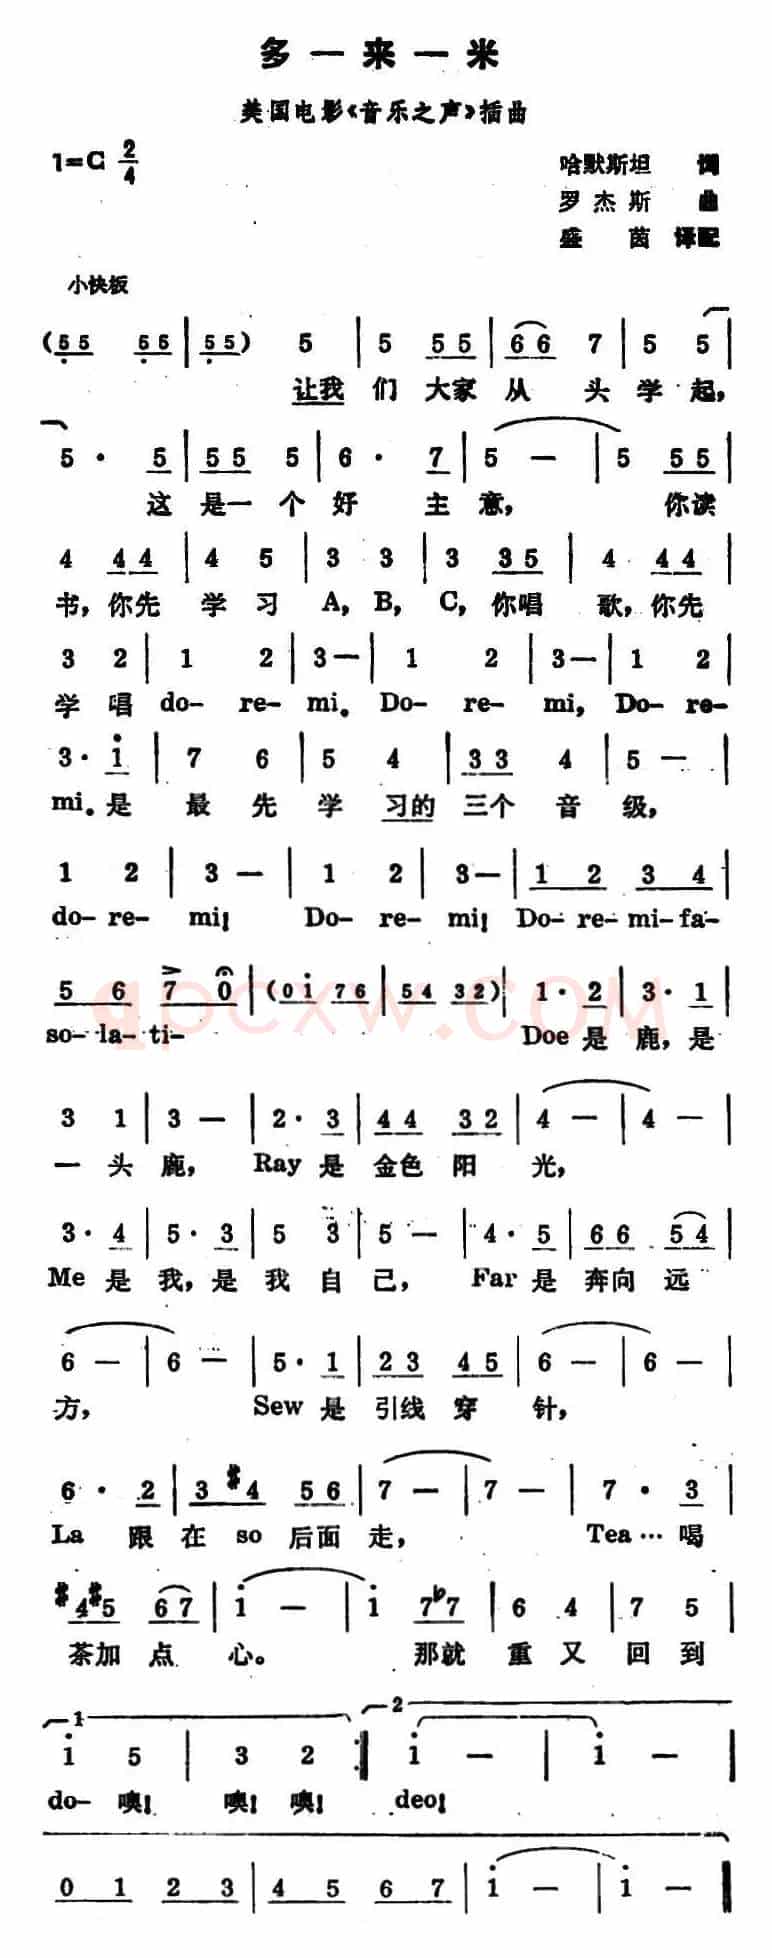 多—来—米
美国电影《音乐之声》插曲
1=C 2/4
哈默斯坦 词
罗杰斯 曲
盛茵 译配
小快板
(5 5 5 5 | 5 5) 5 | 5 5 5 | 6 6 7 | 5 5 |
让我 们 大家 从 头 学 起,
5 · 5 | 5 5 5 | 6 · 7 | 5 — | 5 5 5 |
这 是一 个 好 主 意, 你读
4 4 4 | 4 5 | 3 3 | 3 3 5 | 4 4 4 |
书, 你先 学 习 A, B, C, 你唱 歌, 你先
3 2 | 1 2 | 3 — | 1 2 | 3 — | 1 2 |
学 唱 do- re- mi。 Do- re- mi, Do- re-
3 · i | 7 6 | 5 4 | 3 3 4 | 5 — |
mi。是 最 先 学 习的 三个 音 级,
1 2 | 3 — | 1 2 | 3 — | 1 2 3 4 |
do- re- mi! Do- re- mi! Do- re- mi- fa-
5 6 7 0 | (0 i 7 6 | 5 4 3 2) | 1 · 2 | 3 · 1 |
so- la- ti- Doe 是 鹿, 是
qpcxw.COM
3 1 | 3 — | 2 · 3 | 4 4 3 2 | 4 — | 4 — |
一 头 鹿, Ray 是 金色 阳 光,
3 · 4 | 5 · 3 | 5 3 | 5 — | 4 · 5 | 6 6 5 4 |
Me 是 我, 是 我 自 己, Far 是 奔向 远
6 — | 6 — | 5 · 1 | 2 3 4 5 | 6 — | 6 — |
方, Sew 是 引线 穿 针,
6 · 2 | 3 #4 5 6 | 7 — | 7 — | 7 · 3 |
La 跟 在 so 后面 走, Tea…喝
#4 #5 6 7 | i — | i 7 b7 | 6 4 | 7 5 |
茶加 点 心。 那就 重 又 回 到
1 2
i 5 | 3 2 :| i — | i — |
do- 噢! 噢! 噢! deo!
0 1 2 3 | 4 5 6 7 | i — | i — ||